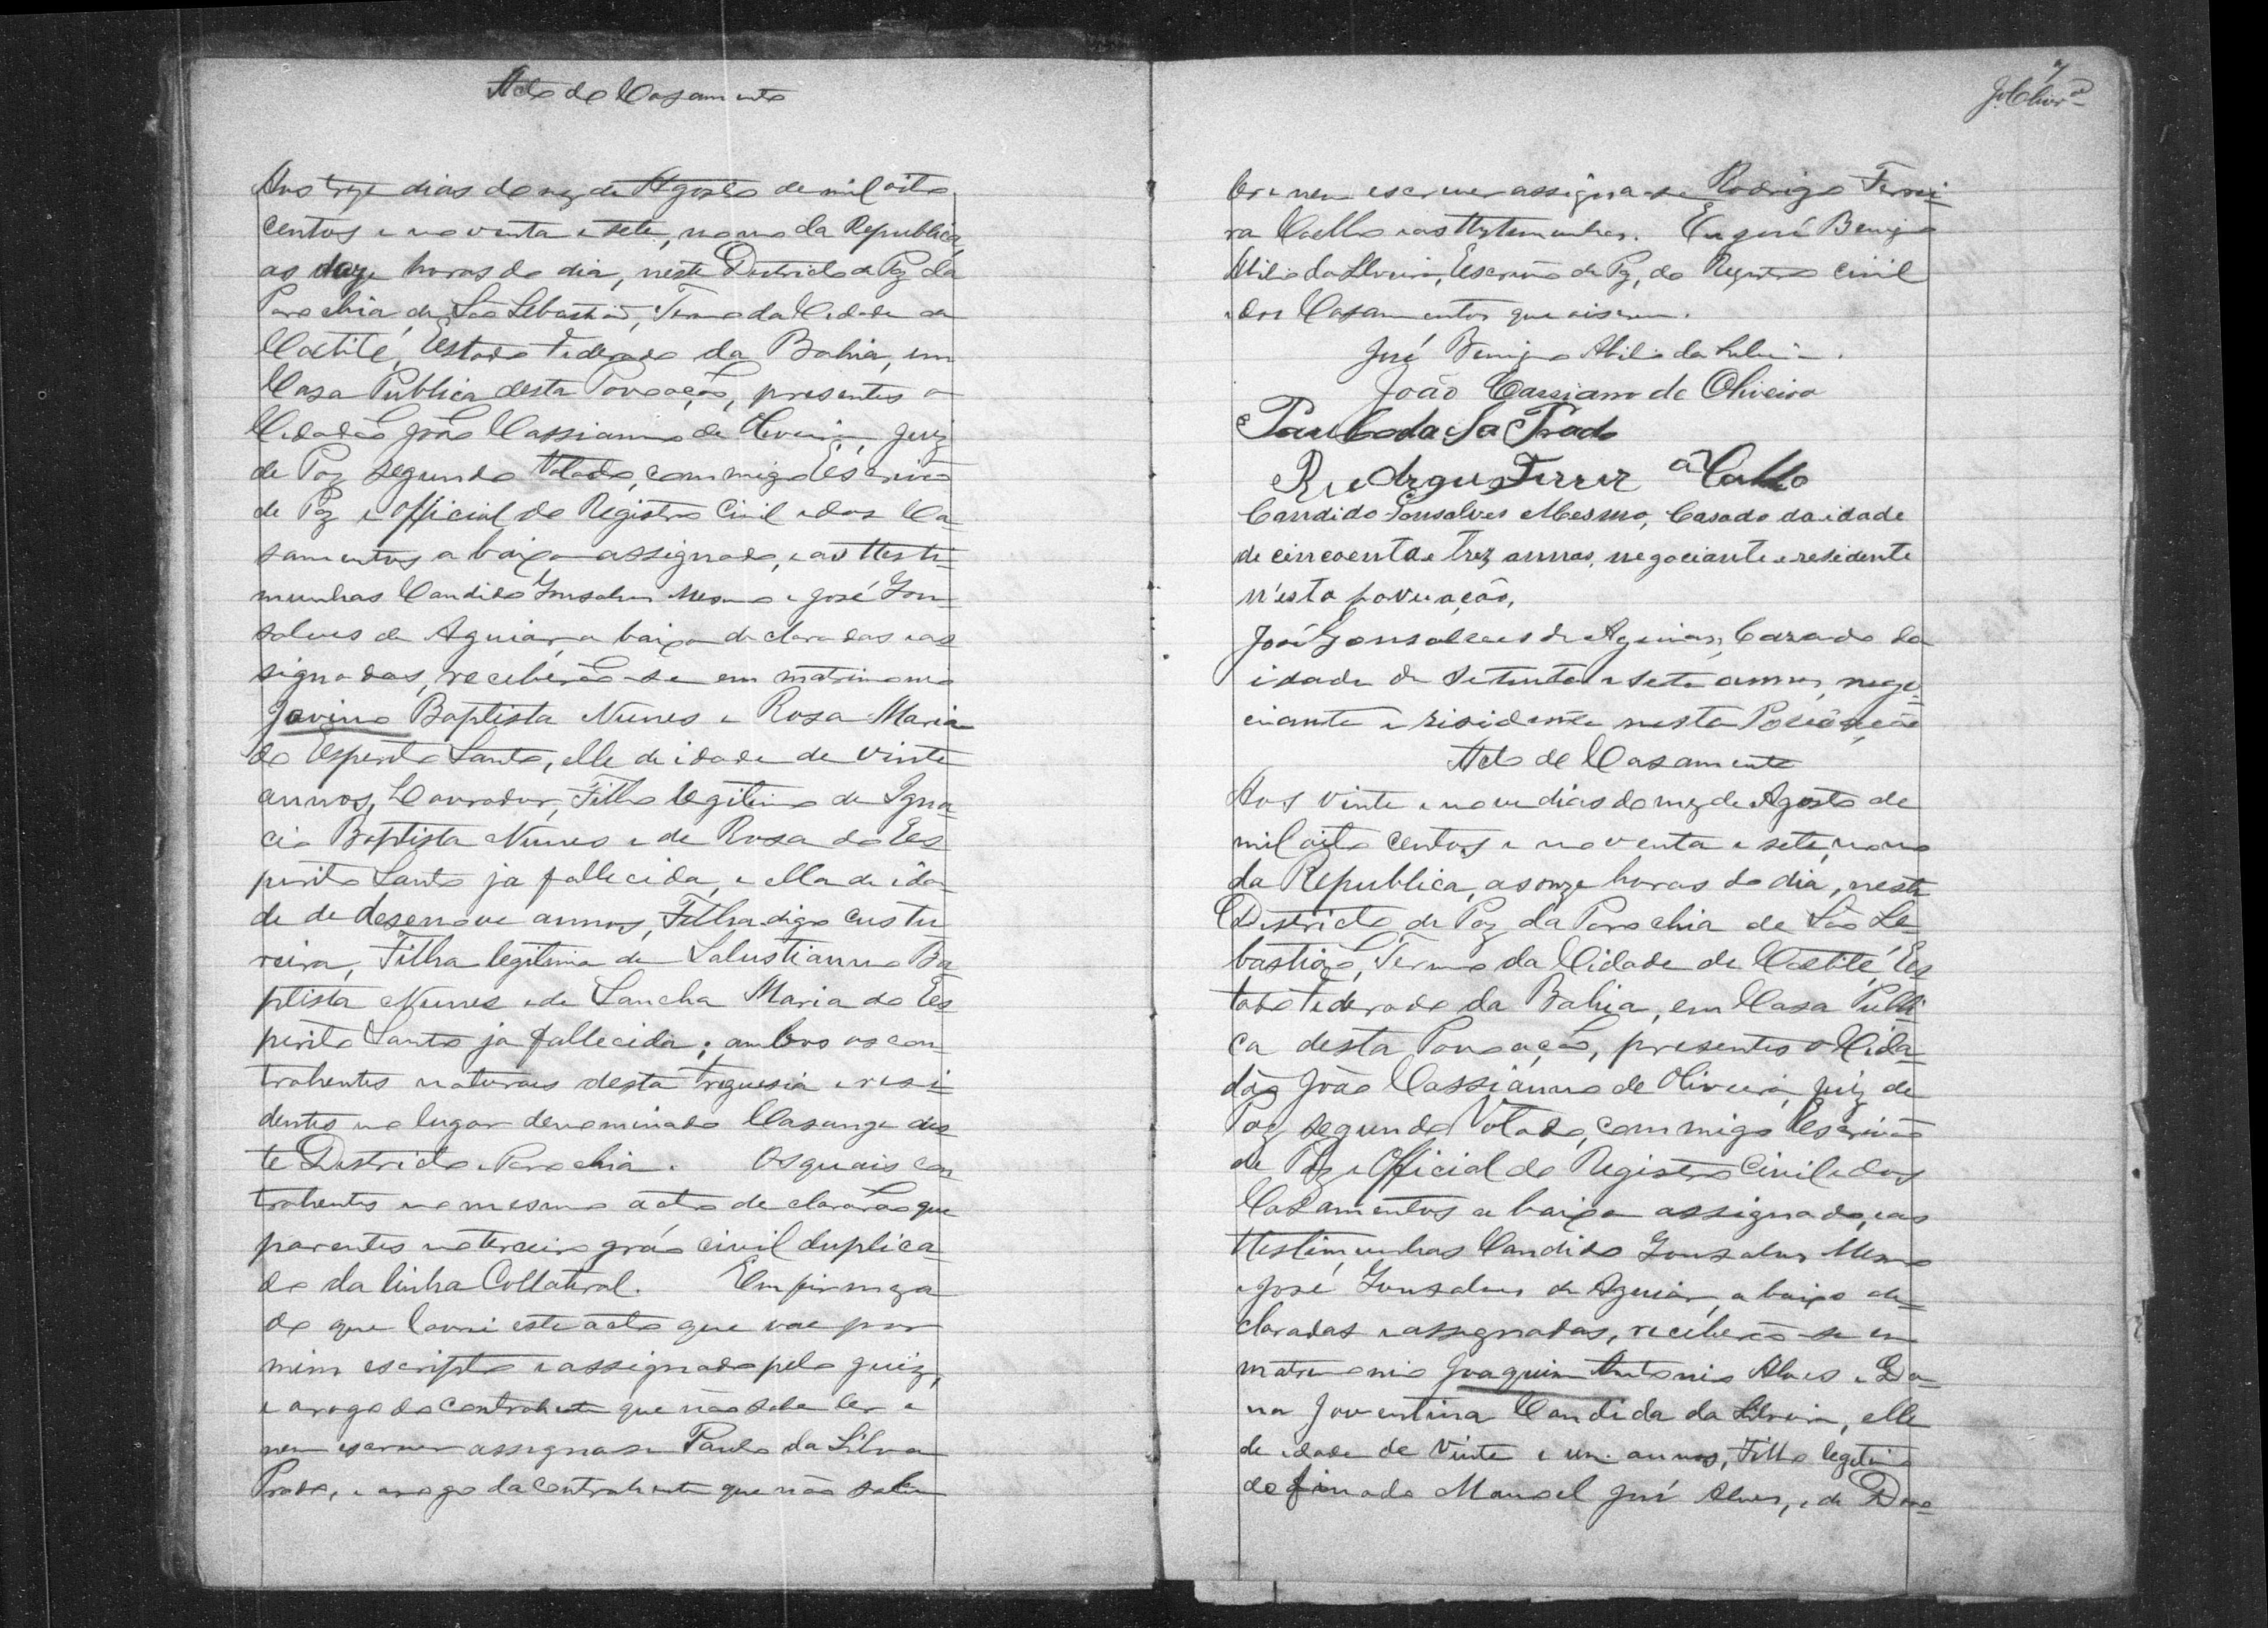 Acto de Casamento
Aos treze dias do mez de Agosto de mil oito
centos e noventa e sete, nono da Republica,
as doze horas do dia, neste Districto de Paz da
Parochia de São Sebastião, Termo da Cidade de
Caetité, Estado Federado da Bahia, em
Casa Publica desta Povoação, presentes o
Cidadão João Cassianno de Oliveira, Juiz
de Paz segundo Votado, commigo Escrivão
de Paz e Official do Registro Civil e dos Ca-
samentos a baixo assignado, e as testi-
munhas Candido Gonsalves Mesmo e José Gon-
salves de Aguiar, a baixo declaradas e as-
signadas, receberão-se em matrimonio
Jovino Baptista Nunes e Rosa Maria
do Esperito Santo, elle de idade de vinte
annos, Lavrador, Filho legitimo de Igna-
cio Baptista Nunes e de Rosa do Es-
perito Santo ja fallecida, e ella de ida-
de de desenove annos, Filha digo custu
reira, Filha legitima de Salustianno Ba
ptista Nunes e de Sancha Maria do Es-
perito Santo ja fallecida; ambos os con-
trahentes naturaes desta Freguesia e resi-
dentes no lugar denominado Casange des-
te Districto e Parochia. Os quais con-
trahentes no mesmo acto declararão que
parentes no terceiro gráo civil duplica-
do da linha Collateral. Em firmeza
do que lavrei este acto que vae por
mim escripto e assignado pelo Juiz,
e arogo do contrahente que não sabe ler e
nem escrever assigna-se Paulo da Silva
Prado, e arogo da contrahente que não sabe
7
ler e nem escrever assigna-se Rodrigo Ferrei-
ra Coelho e as testemunhas. Eu José Benigno
Abilio da Silveira, Escrivão de Paz, do Registro Civil
e dos Casamentos que
José Benigno Abilio da Silveira.
João Cassiano de Oliveira
Paulo da Sa Prado
Rudrgu Ferrer a Coello
Candido Gonsalves Mesmo, Casado da idade
de cincoenta e trez annos, negociante e residente
n'esta povuação,
José Gonsalves de Aguiar, Cazado da
idade de setenta e sete annos, nego-
ciante e risidente nesta Povoação
Acto de Casamento
Aos vinte e nove dias do mez de Agosto de
mil oito centos e noventa e sete, nono
da Republica, as onze horas do dia, neste
Districto de Paz da Parochia de São Se-
bastião, Termo da Cidade de Caetité, Es
tado Federado da Bahia, em Casa Publi-
ca desta Povoação, presentes o Cida-
dão João Cassianno de Oliveira, Juiz de
Paz segundo Votado, commigo Escrivão
de Paz e Official do Registro Civil e dos
Casamentos a baixo assignado, e as
testimunhas Candido Gonsalves Mesmo
e José Gonsalves de Aguiar, a baixo de-
claradas e assignadas, receberão-se em
matrimonio Joaquim Antonio Alves e Do-
na Joventina Candida da Silveira, elle
de idade de vinte e um annos, Filho legitimo
do finado Manoel José Alves, e de Dona